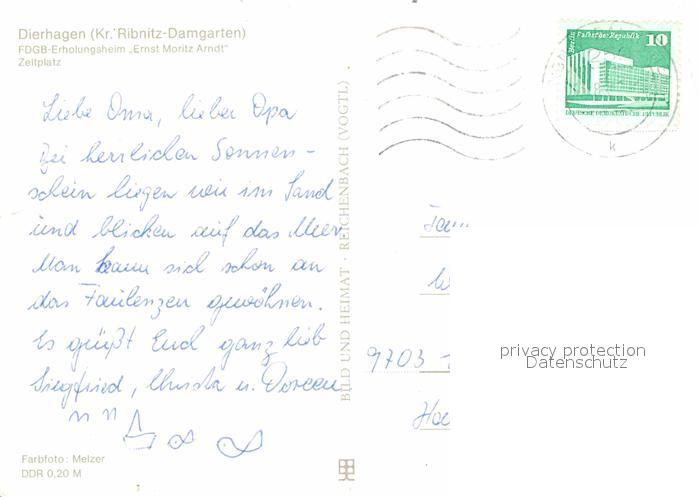 Dierhagen (Kr. Ribnitz-Damgarten)
FDGB-Erholungsheim „Ernst Moritz Arndt"
Zeltplatz
Liebe Oma, lieber Opa
Bei herrlichen Sonnen-
schein liegen wir im Sand
und blicken auf das Meer.
Man kann sich schon an
das Faulenzen gewöhnen.
Es grüßt Euch ganz lieb
Siegfried, Christa u. Doreen
Farbfoto: Melzer
DDR 0,20 M
BILD UND HEIMAT · REICHENBACH (VOGTL)
Berlin Palast der Republik
10
DEUTSCHE DEMOKRATISCHE REPUBLIK
k
Fam...
9703
privacy protection
Datenschutz